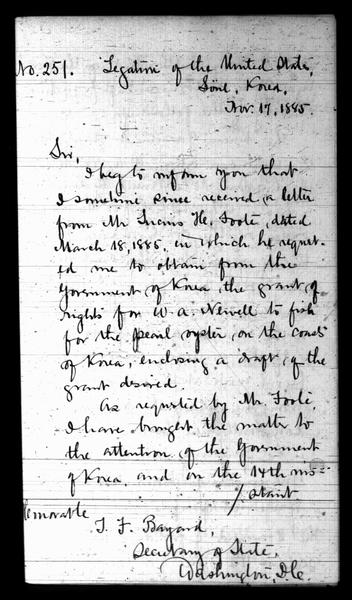 No. 251. Legation of the United States,
Söul, Korea,
Nov. 17, 1885.
Sir,
I beg to inform you that
I sometime since received a letter
from Mr Lucius H. Foote, dated
March 18, 1885, in which he request-
ed me to obtain from the
Government of Korea the grant of
rights for W. A. Newell to fish
for the pearl oyster on the coast
of Korea, enclosing a draft of the
grant desired.
As requested by Mr. Foote,
I have brought the matter to
the attention of the Government
of Korea and on the 14th in-
stant
Honorable
T. F. Bayard,
Secretary of State,
Washington, D.C.